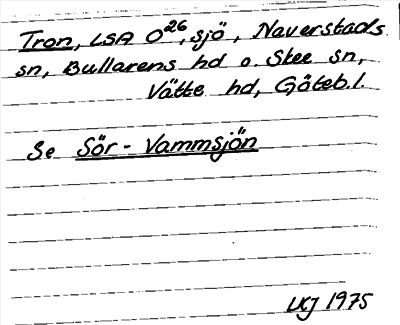 Tron, LSA O26, sjö, Naverstads
sn, Bullarens hd o. Skee sn,
Vätte hd, Göteb.l.
Se Sör-Vammsjön
LKJ 1975